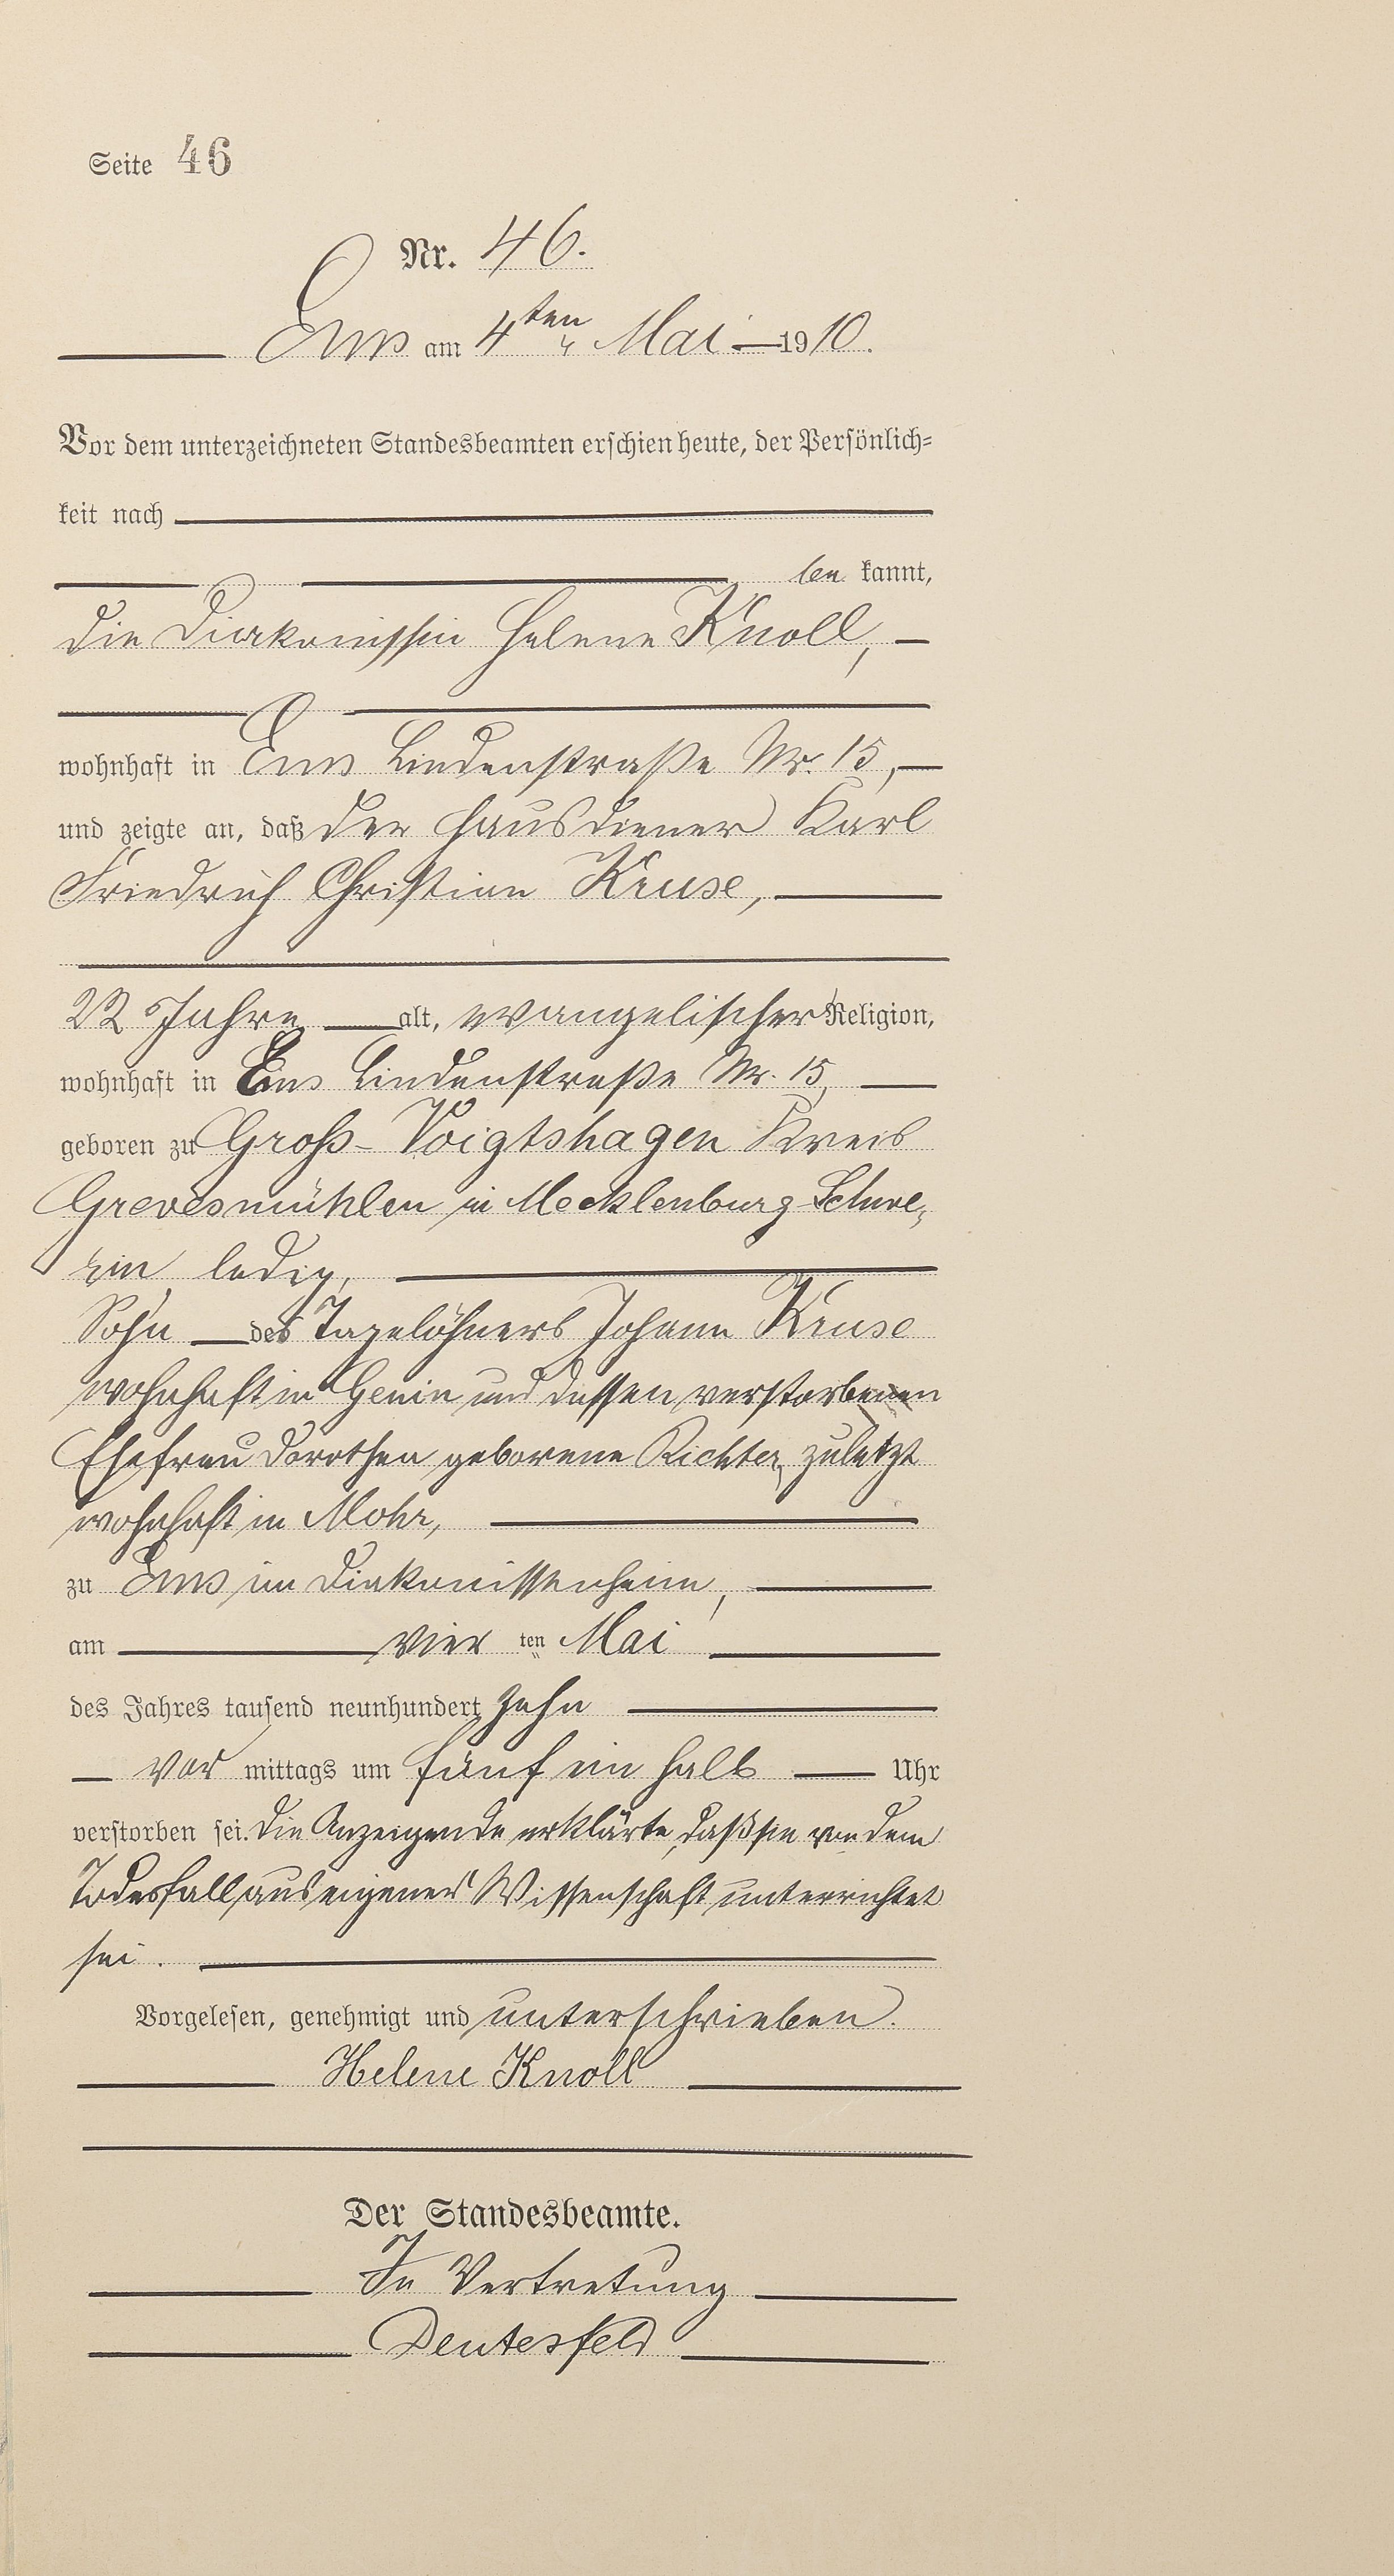 Seite 46
Nr. 46.
Ems am 4ten Mai 1910.
Vor dem unterzeichneten Standesbeamten erschien heute, der Persönlich=
keit nach
be kannt,
die Diakonissin Helene Knoll,
wohnhaft in Ems Lindenstraße Nr. 15,
und zeigte an, daß der Hausdiener Karl
Friedrich Christian Kruse,
22 Jahre alt, evangelischer Religion,
wohnhaft in Ems Lindenstraße Nr. 15,
geboren zu Groß-Voigtshagen Kreis
Grevesmühlen in Mecklenburg-Schwe,
rin, ledig,
Sohn des Tagelöhners Johann Kruse
wohnhaft in Genin und dessen verstorbenen
Ehefrau Dorothea geborene Richter, zuletzt
wohnhaft in Mohr,
zu Ems im Diakonissenheim,
am vier ten Mai
des Jahres tausend neunhundert zehn
vor mittags um fünf ein halb Uhr
verstorben sei. Die Anzeigende erklärte, daß sie von dem
Todesfall aus eigener Wissenschaft unterrichtet
sei.
Vorgelesen, genehmigt und unterschrieben.
Helene Knoll
Der Standesbeamte.
In Vertretung
Deutesfeld